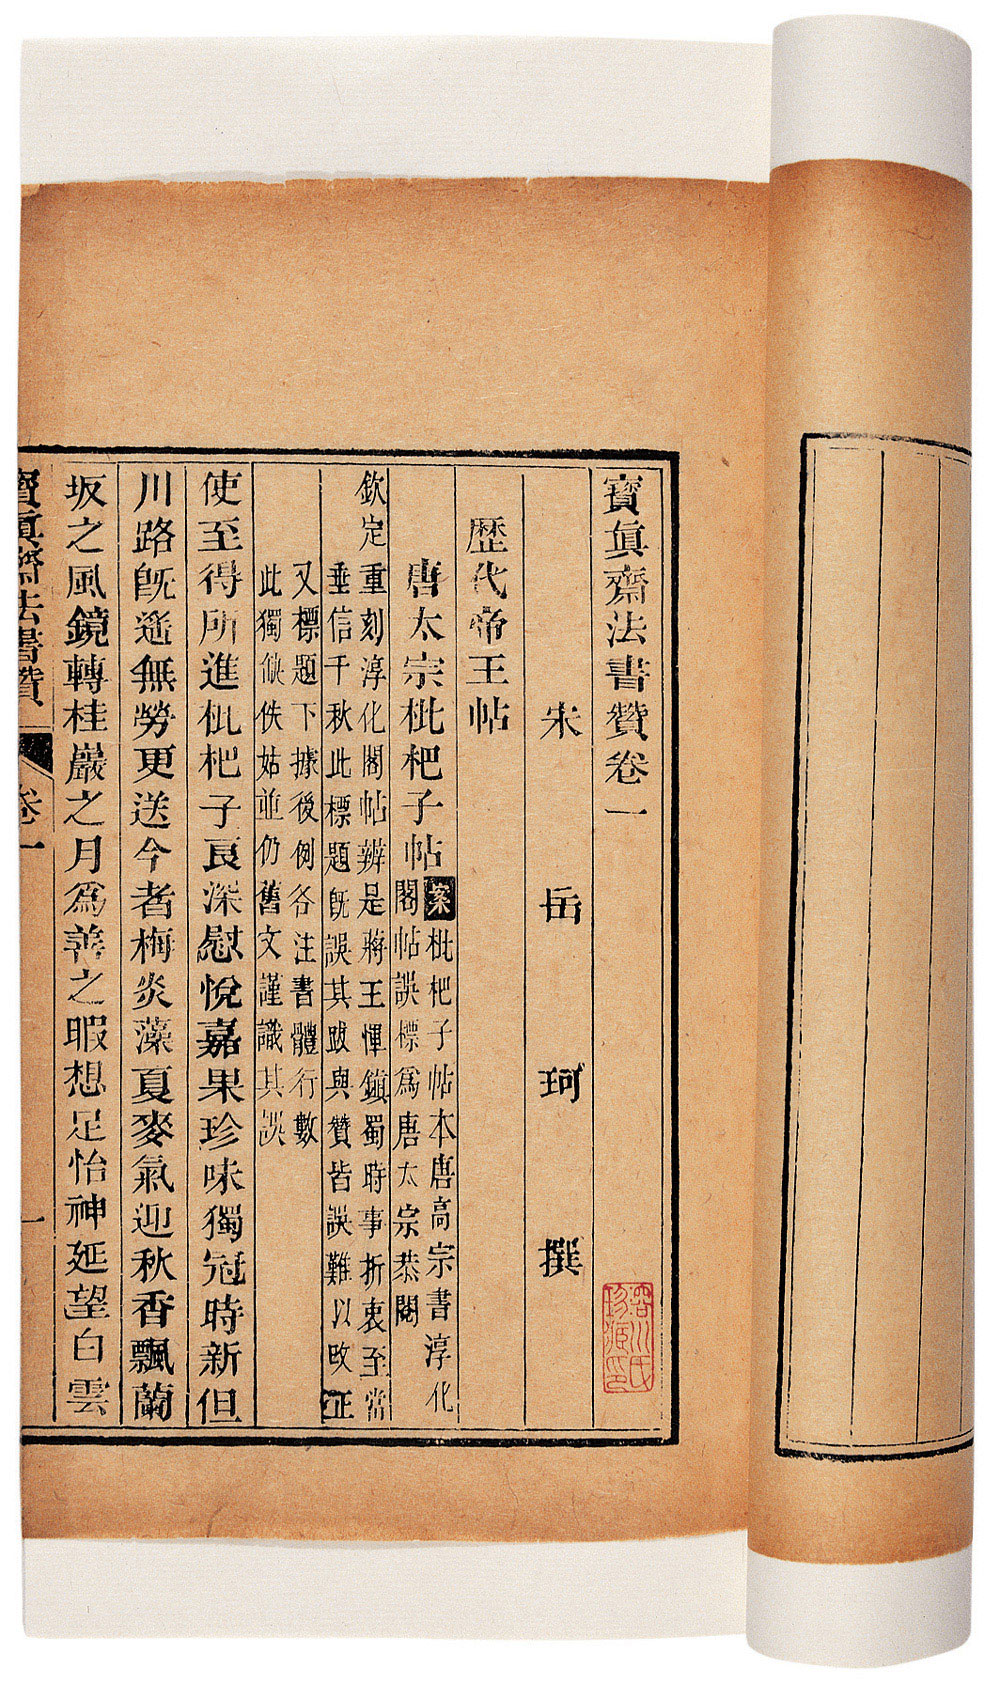 寶眞齋法書贊卷一
宋岳珂撰
歷代帝王帖
唐太宗枇杷子帖案枇杷子帖本唐高宗書淳化
閣帖誤標爲唐太宗恭閱
欽定重刻淳化閣帖辨是蔣王惲鎮蜀時事折衷至當
垂信千秋此標題旣誤其跋與贊皆誤難以改正
又標題下據後例各注書體行數
此獨缺佚姑並仍舊文謹識其誤
使至得所進枇杷子良深慰悅嘉果珍味獨冠時新但
川路旣遙無勞更送今者梅炎藻夏麥氣迎秋香飄蘭
坂之風鏡轉桂巖之月爲善之暇想足怡神延望白雲
寶眞齋法書贊
卷一
一
川氏
珍藏印